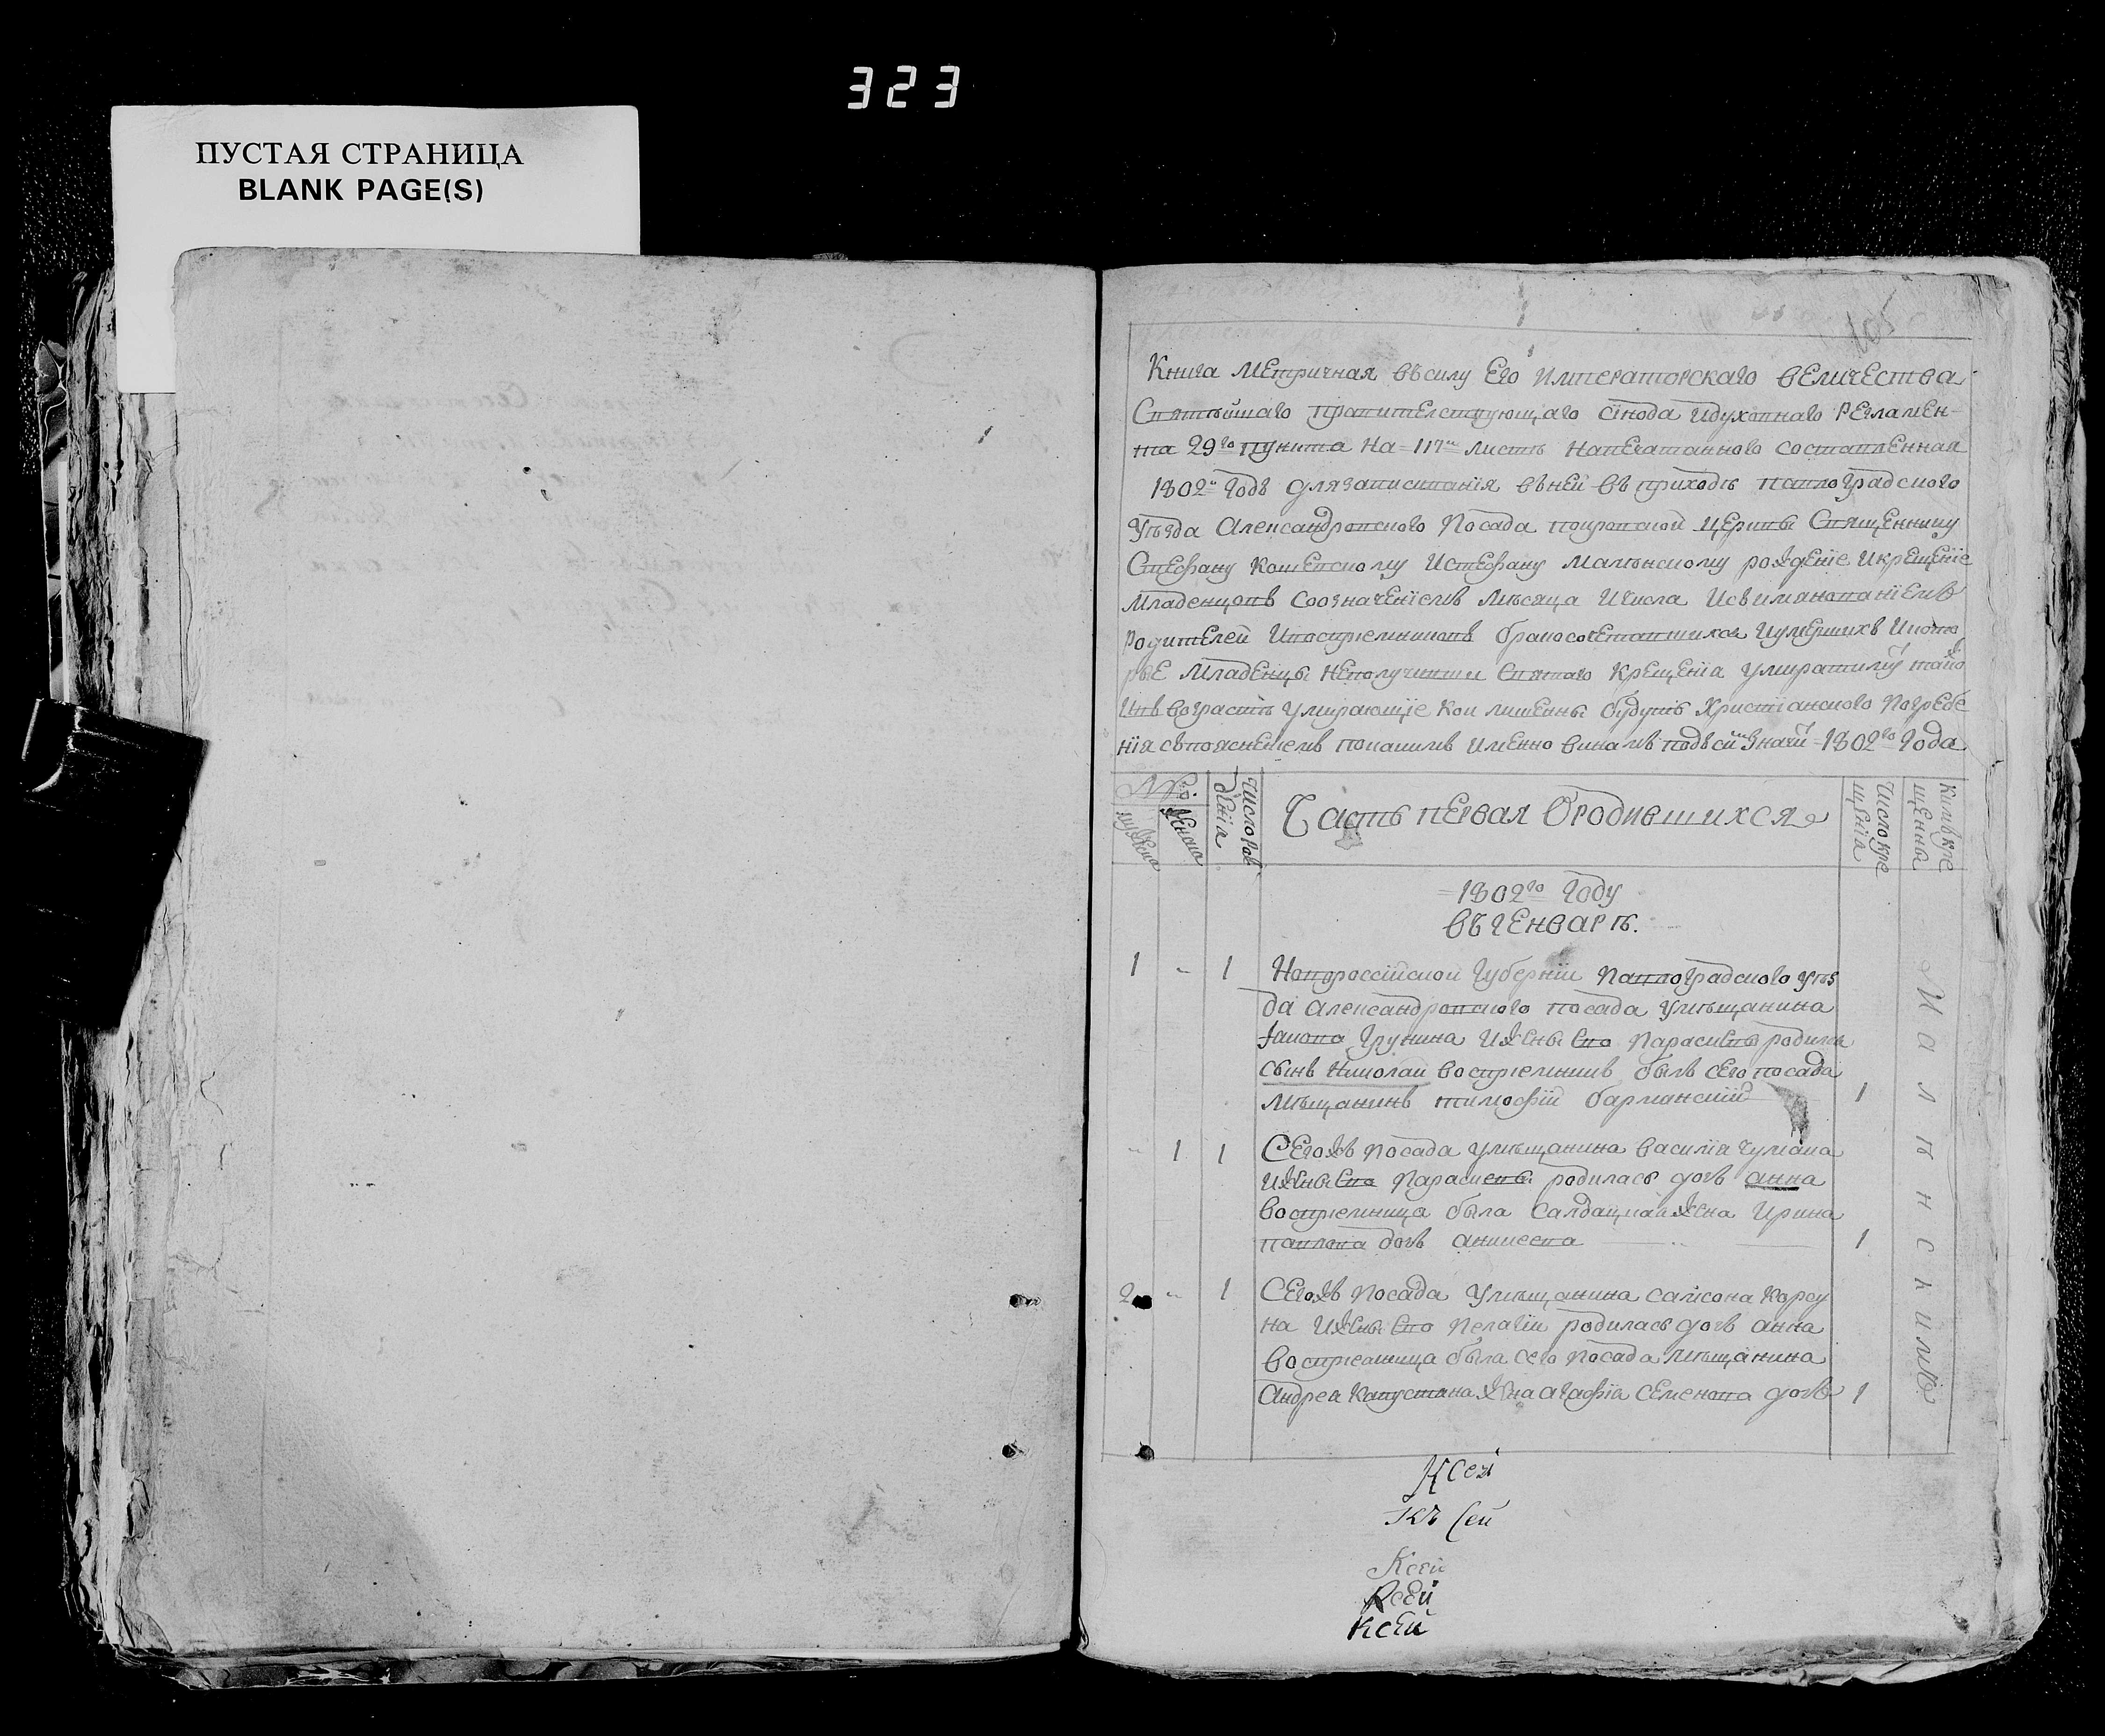 323
ПУСТАЯ СТРАНИЦА
BLANK PAGE(S)
105
Книга Метричная въ силу Его Императорскаго величества
Святѣйшаго правителствующаго сѵнода и духовнаго Регламен-
та 29го пункта на 117м листѣ напечатанного составленная
1802м годѣ для записиванїя въ ней въ приходѣ павлоградского
уѣзда Александровского посада покровской церквѣ Священнику
Стефану Кошевскому и стефану Малѣнскому рожденїе и крещенїе
Младенцовъ со означенїемъ мѣсяца и числа и съ имянованїемъ
родителей и воспрїемниковъ бракосочетавшихся и умершихъ и кото
рые младенцы неполучивши святаго крещенїа умирати
и въ возрастѣ умирающїе кои лишены будутъ христїанского погребе
нїя съ пояснениемъ по какимъ именно винамъ подъ симъ 1802го года
№
мужеска
женска
число рож
денїа
Часть первая о родившихся
число кре
щенїа
кимъ кре
щенны
1802го году
въ генварѣ.
1 - 1 Новороссїйской губернїи павлоградского уѣз
да александровского посада у мѣщанина
Якова Грунина и жены его Параскевы родился
сынъ Николай воспрїемникъ былъ сего посада
мѣщанинъ тимофїй барманскїй 1
- 1 1 Сего жъ посада у мѣщанина василїя чумака
и жены его Параскевы родилась дочь анна
воспрїемница была салдацкая жена Ирина
павлова дочь аникеева 1
2 - 1 Сего жъ посада у мѣщанина самсона Корсу
на и жены его Пелагїи родилась дочь анна
воспрїемница была сего посада мѣщанина
андрея капустина жена агафїя семенова дочь 1
Малѣнскимъ
К сей
къ сей
К сей
К сей
К сей